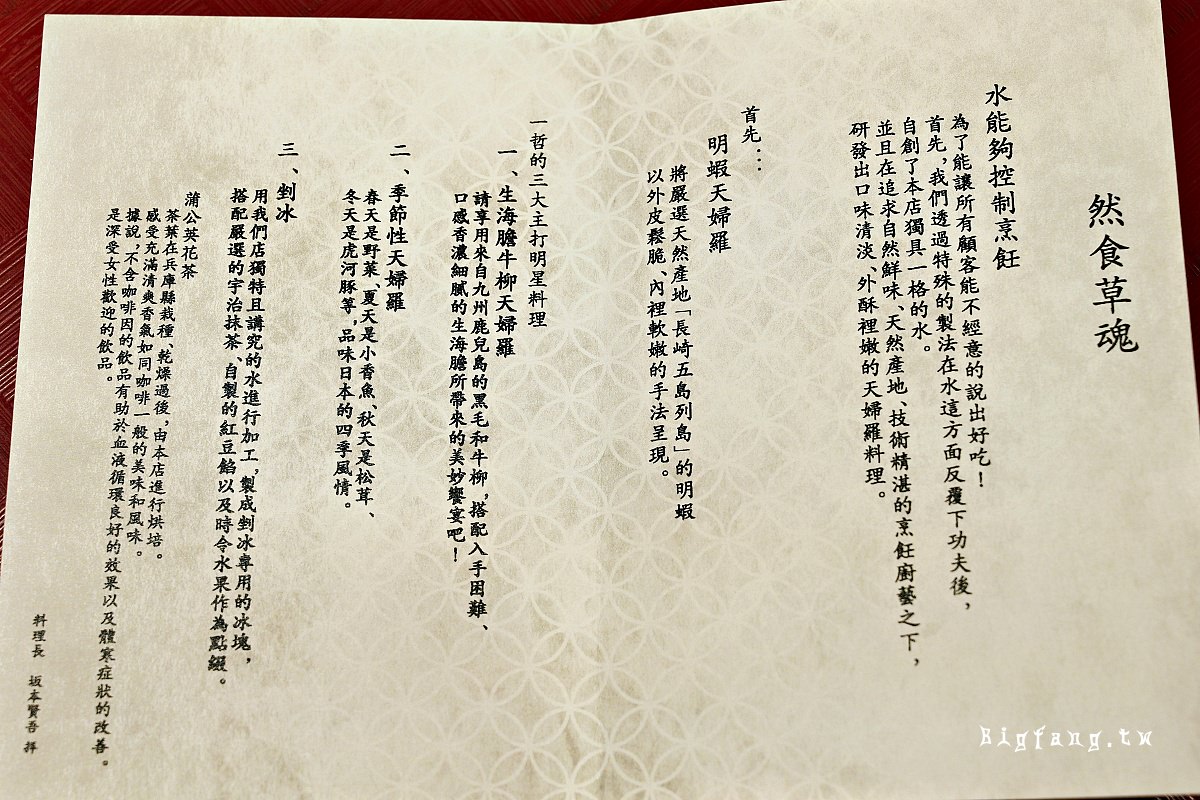 然食草魂
水能夠控制烹飪
為了能讓所有顧客能不經意的說出好吃！
首先，我們透過特殊的製法在水這方面反覆下功夫後，
自創了本店獨具一格的水。
並且在追求自然鮮味、天然產地、技術精湛的烹飪廚藝之下，
研發出口味清淡、外酥裡嫩的天婦羅料理。
首先…
明蝦天婦羅
將嚴選天然產地「長崎五島列島」的明蝦
以外皮鬆脆、內裡軟嫩的手法呈現。
一哲的三大主打明星料理
一、生海膽牛柳天婦羅
請享用來自九州鹿兒島的黑毛和牛柳，搭配入手困難、
口感香濃細膩的生海膽所帶來的美妙饗宴吧！
二、季節性天婦羅
春天是野菜、夏天是小香魚、秋天是松茸、
冬天是虎河豚等，品味日本的四季風情。
三、剉冰
用我們店獨特且講究的水進行加工，製成剉冰專用的冰塊，
搭配嚴選的宇治抹茶、自製的紅豆餡以及時令水果作為點綴。
蒲公英花茶
茶葉在兵庫縣栽種、乾燥過後，由本店進行烘培。
感受充滿清爽香氣如同咖啡一般的美味和風味。
據說，不含咖啡因的飲品有助於血液循環良好的效果以及體寒症狀的改善。
是深受女性歡迎的飲品。
料理長 坂本賢吾 拜
Bigfang.tw